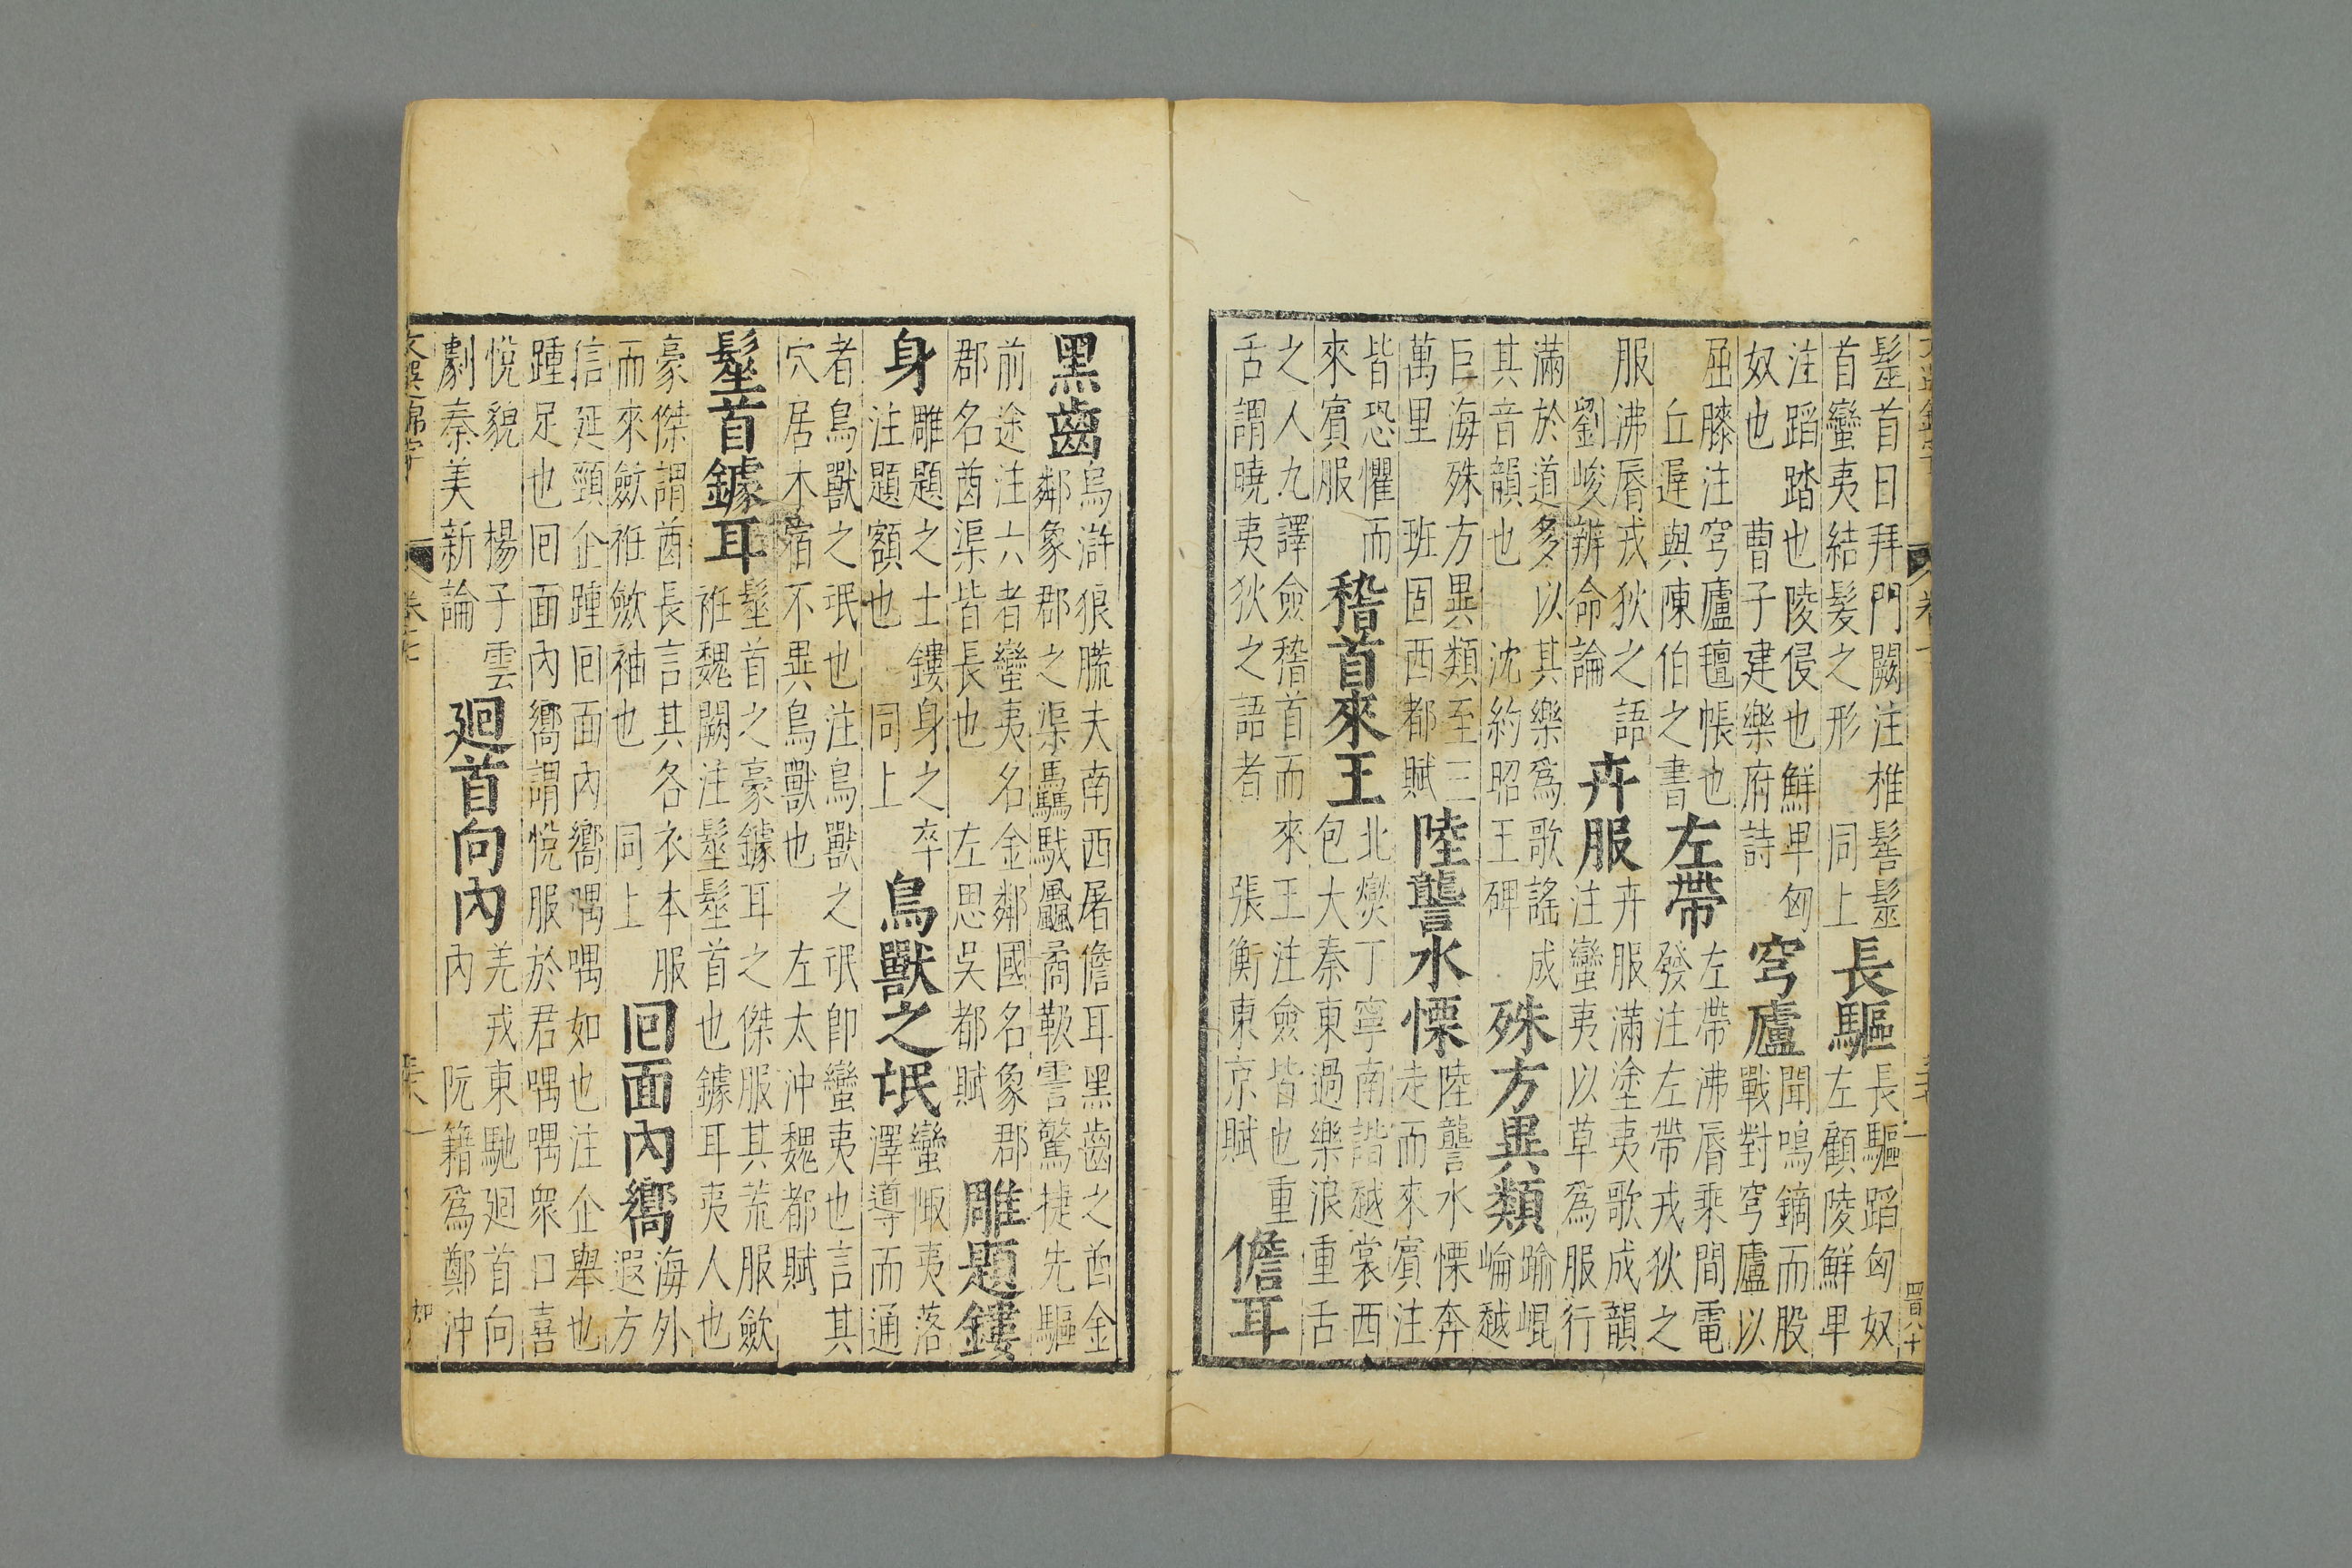 髽首日拜門闕注椎髻髽
首蠻夷結髮之形 同上
長驅
長驅蹈匈奴
左顧陵鮮卑
注蹈踏也陵侵也鮮卑匈
奴也 曹子建樂府詩
穹廬
聞鳴鏑而股
戰對穹廬以
屈膝注穹廬氊帳也
丘遲與陳伯之書
左帶
左帶沸脣乘間電
發注左帶戎狄之
服沸脣戎狄之語
劉峻辨命論
卉服
卉服滿塗夷歌成韻
注蠻夷以草爲服行
滿於道多以其樂爲歌謠成
其音韻也 沈約昭王碑
殊方異類
踰崐
崘越
巨海殊方異類至三
萬里 班固西都賦
陸讋水慄
陸讋水慄奔
走而來賓注
皆恐懼而
來賓服
稽首來王
北爕丁寧南諧越裳西
包大秦東過樂浪重舌
之人九譯僉稽首而來王注僉皆也重
舌謂曉夷狄之語者 張衡東京賦
儋耳
黑齒
烏滸狼䐠夫南西屠儋耳黑齒之酋金
鄰象郡之渠驫駥飍矞靸霅驚捷先驅
前途注六者蠻夷名金鄰國名象郡
郡名酋渠皆長也 左思吳都賦
雕題鏤
身
雕題之士鏤身之卒
注題額也 同上
鳥獸之氓
蠻陬夷落
譯導而通
者鳥獸之氓也注鳥獸之氓卽蠻夷也言其
穴居木宿不異鳥獸也 左太沖魏都賦
髽首鐻耳
髽首之豪鐻耳之傑服其荒服歛
袵魏闕注髽髽首也鐻耳夷人也
豪傑謂酋長言其各衣本服
而來歛袵歛袖也 同上
回面內嚮
海外
遐方
信延頸企踵回面內嚮喁喁如也注企舉也
踵足也回面內嚮謂悅服於君喁喁眾口喜
悅貌 楊子雲
劇秦美新論
廻首向內
羌戎東馳廻首向
內 阮籍爲鄭沖
文選錦字
卷七